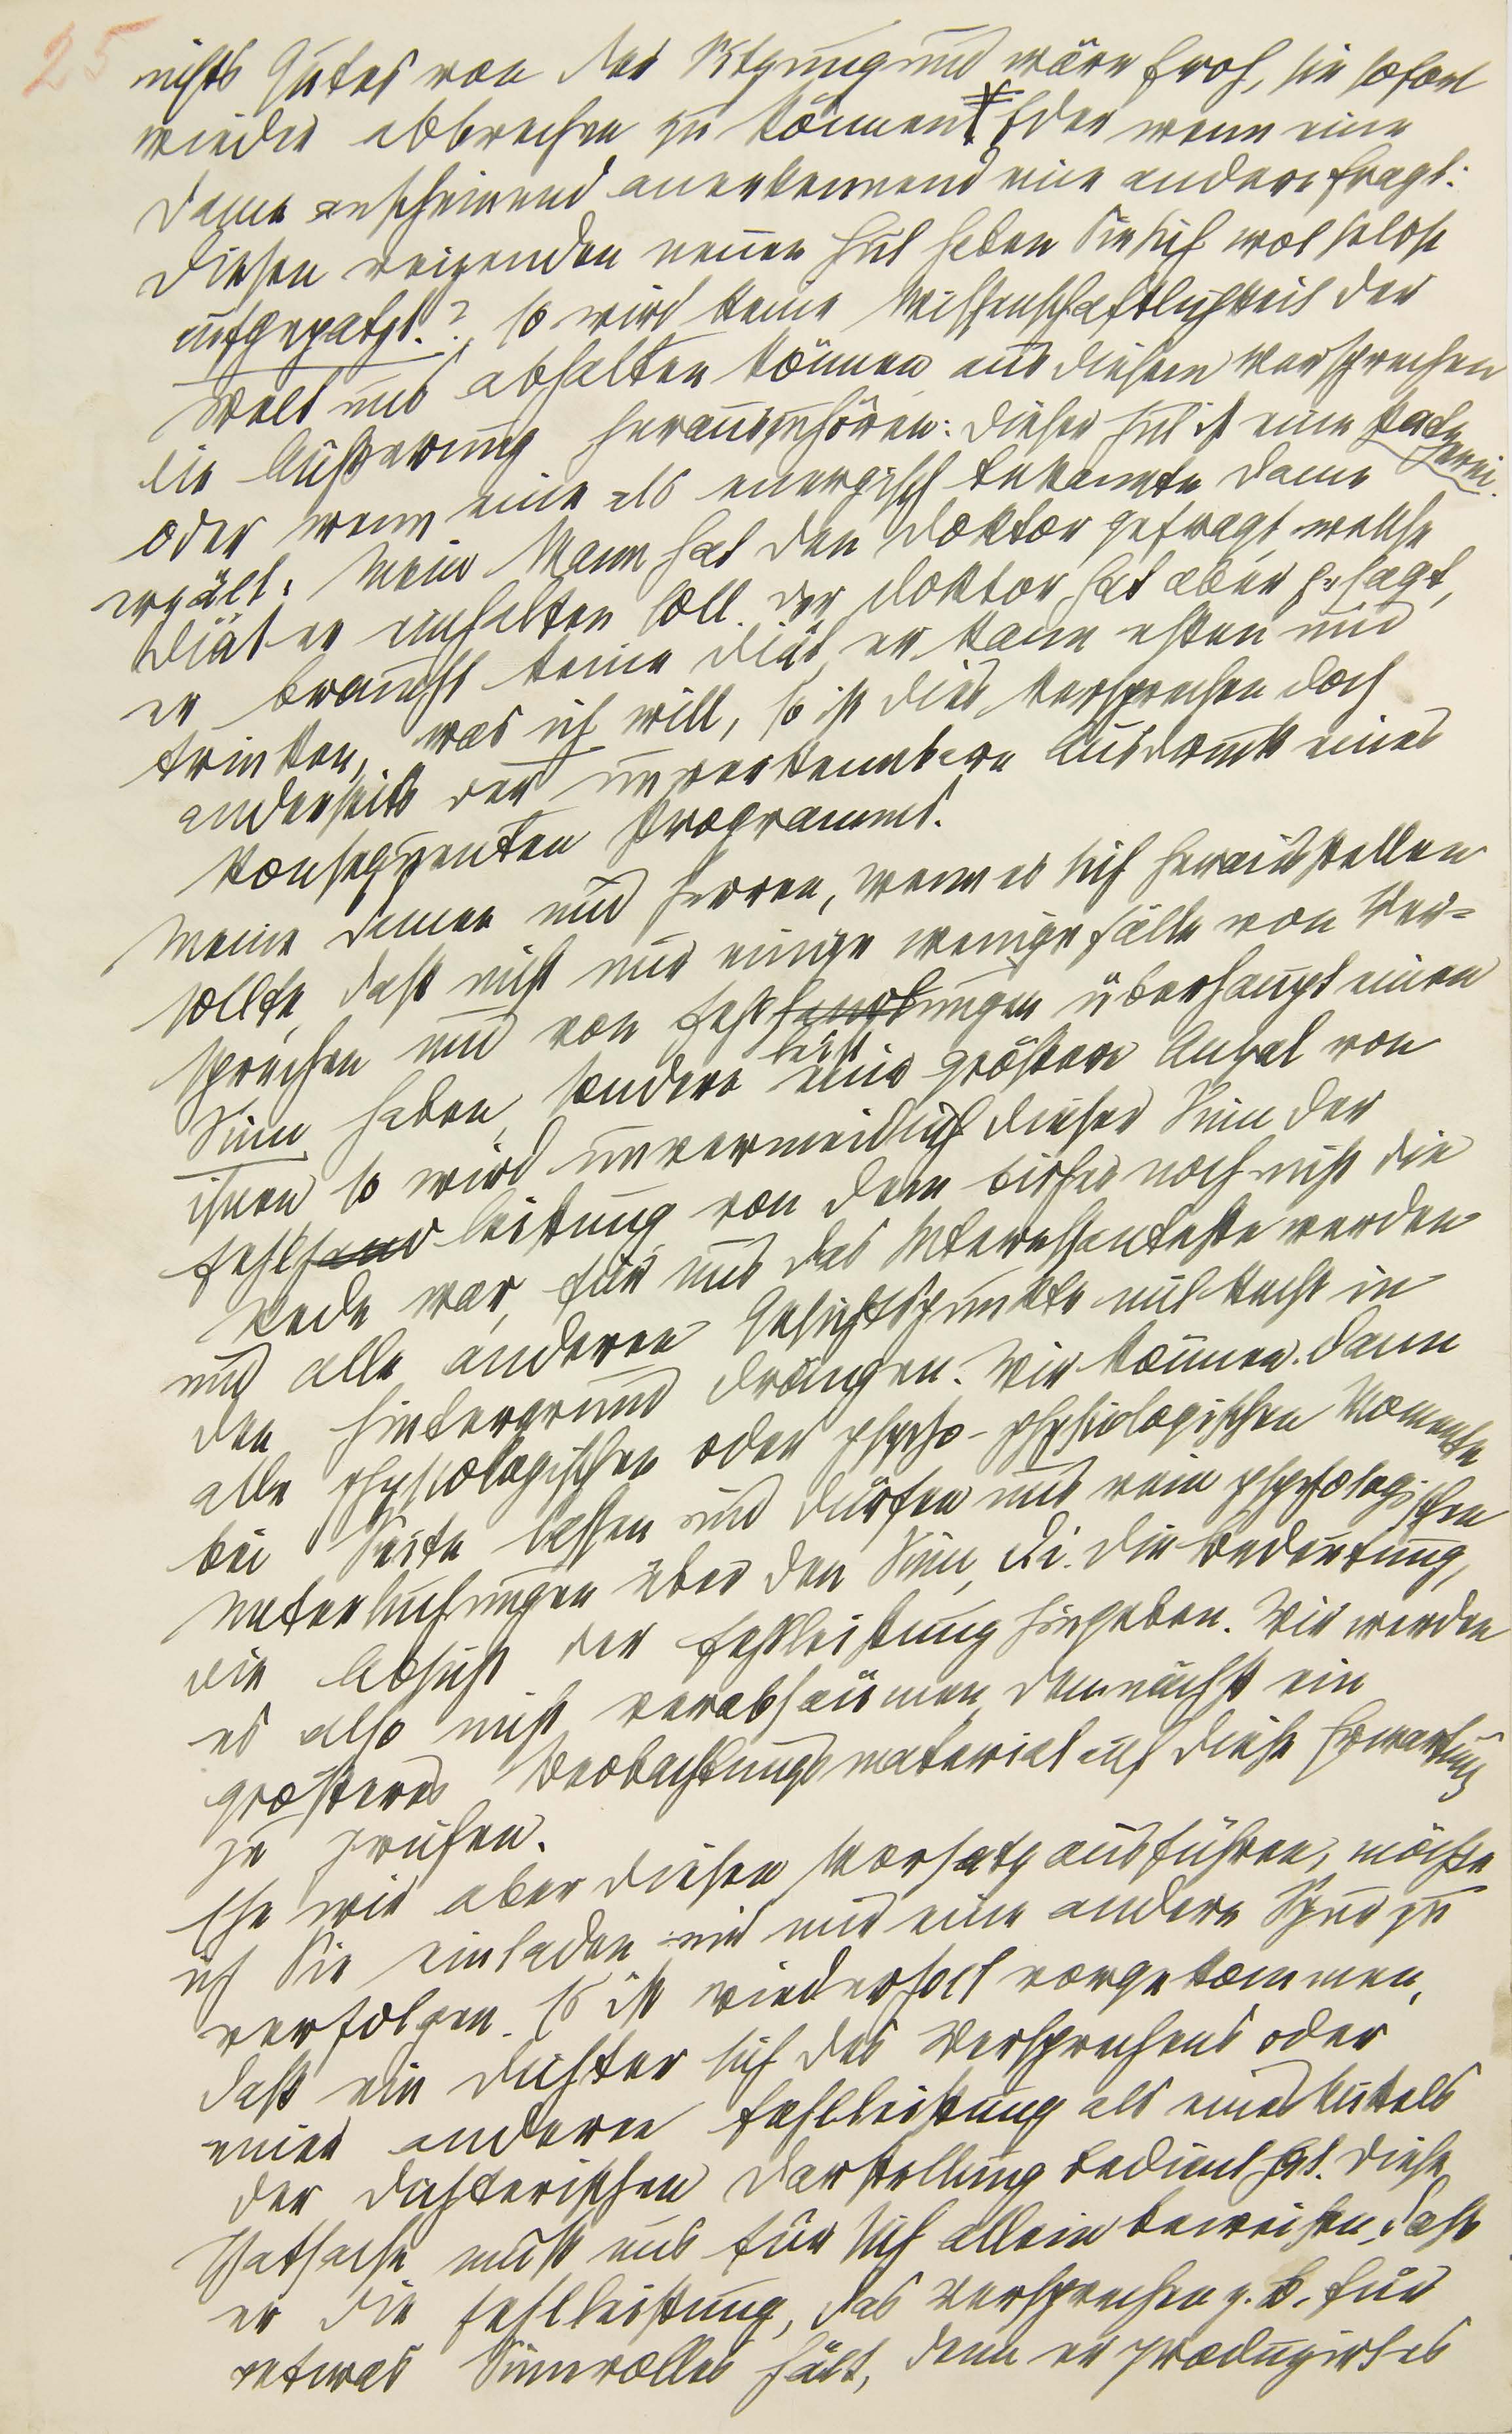 25
nichts Gutes von der Sitzung und wäre froh, sie sofort
wieder abbrechen zu können. Oder wenn eine
Dame anscheinend anerkennend eine andere fragt:
Diesen reizenden neuen Hut haben Sie sich wol selbst
aufgepatzt?, so wird keine Wissenschaftlichkeit der
Welt uns abhalten können aus diesem Versprechen
die Äußerung herauszuhören: Dieser Hut ist eine Patzerei.
oder wenn eine als energisch bekannte Dame
erzält: Mein Mann hat den Doktor gefragt, welche
Diät er einhalten soll. Der Doktor hat aber gesagt,
er braucht keine Diät, er kann essen und
trinken, was ich will, so ist dies Versprechen doch
anderseits der unverkennbare Ausdruck eines
konsequenten Programms.
Meine Damen und Herren, wenn es sich herausstellen
sollte, daß nicht nur einige wenige Fälle von Ver-
sprechen und von Fehlhandlungen überhaupt einen
leist
Sinn haben, sondern eine größere Anzal von
ihnen so wird unvermeidlich dieser Sinn der
Fehlhand leistung, von dem bisher noch nicht die
Rede war, für uns das Interessanteste werden
und alle anderen Gesichtspunkte mit Recht in
den Hintergrund drängen. Wir können dann
alle physiologischen oder psycho-physiologischen Momente
bei Seite lassen und dürfen uns rein psychologischen
Untersuchungen über den Sinn, d.i. die Bedeutung,
die Absicht der Fehlleistung hingeben. Wir werden
es also nicht verabsäumen, demnächst ein
größeres Beobachtungsmaterial auf diese Erwartung
zu prüfen.
Ehe wir aber diesen Vorsatz ausführen, möchte
ich Sie einladen mit mir eine andere Spur zu
verfolgen. Es ist wiederholt vorgekommen,
daß ein Dichter sich des Versprechens oder
einer anderen Fehlleistung als eines Mittels
der dichterischen Darstellung bedient hat. Diese
Thatsache muß uns für sich allein beweisen, daß
er die Fehlleistung, das Versprechen z. B. für
etwas Sinnvolles hält, denn er produzirt es